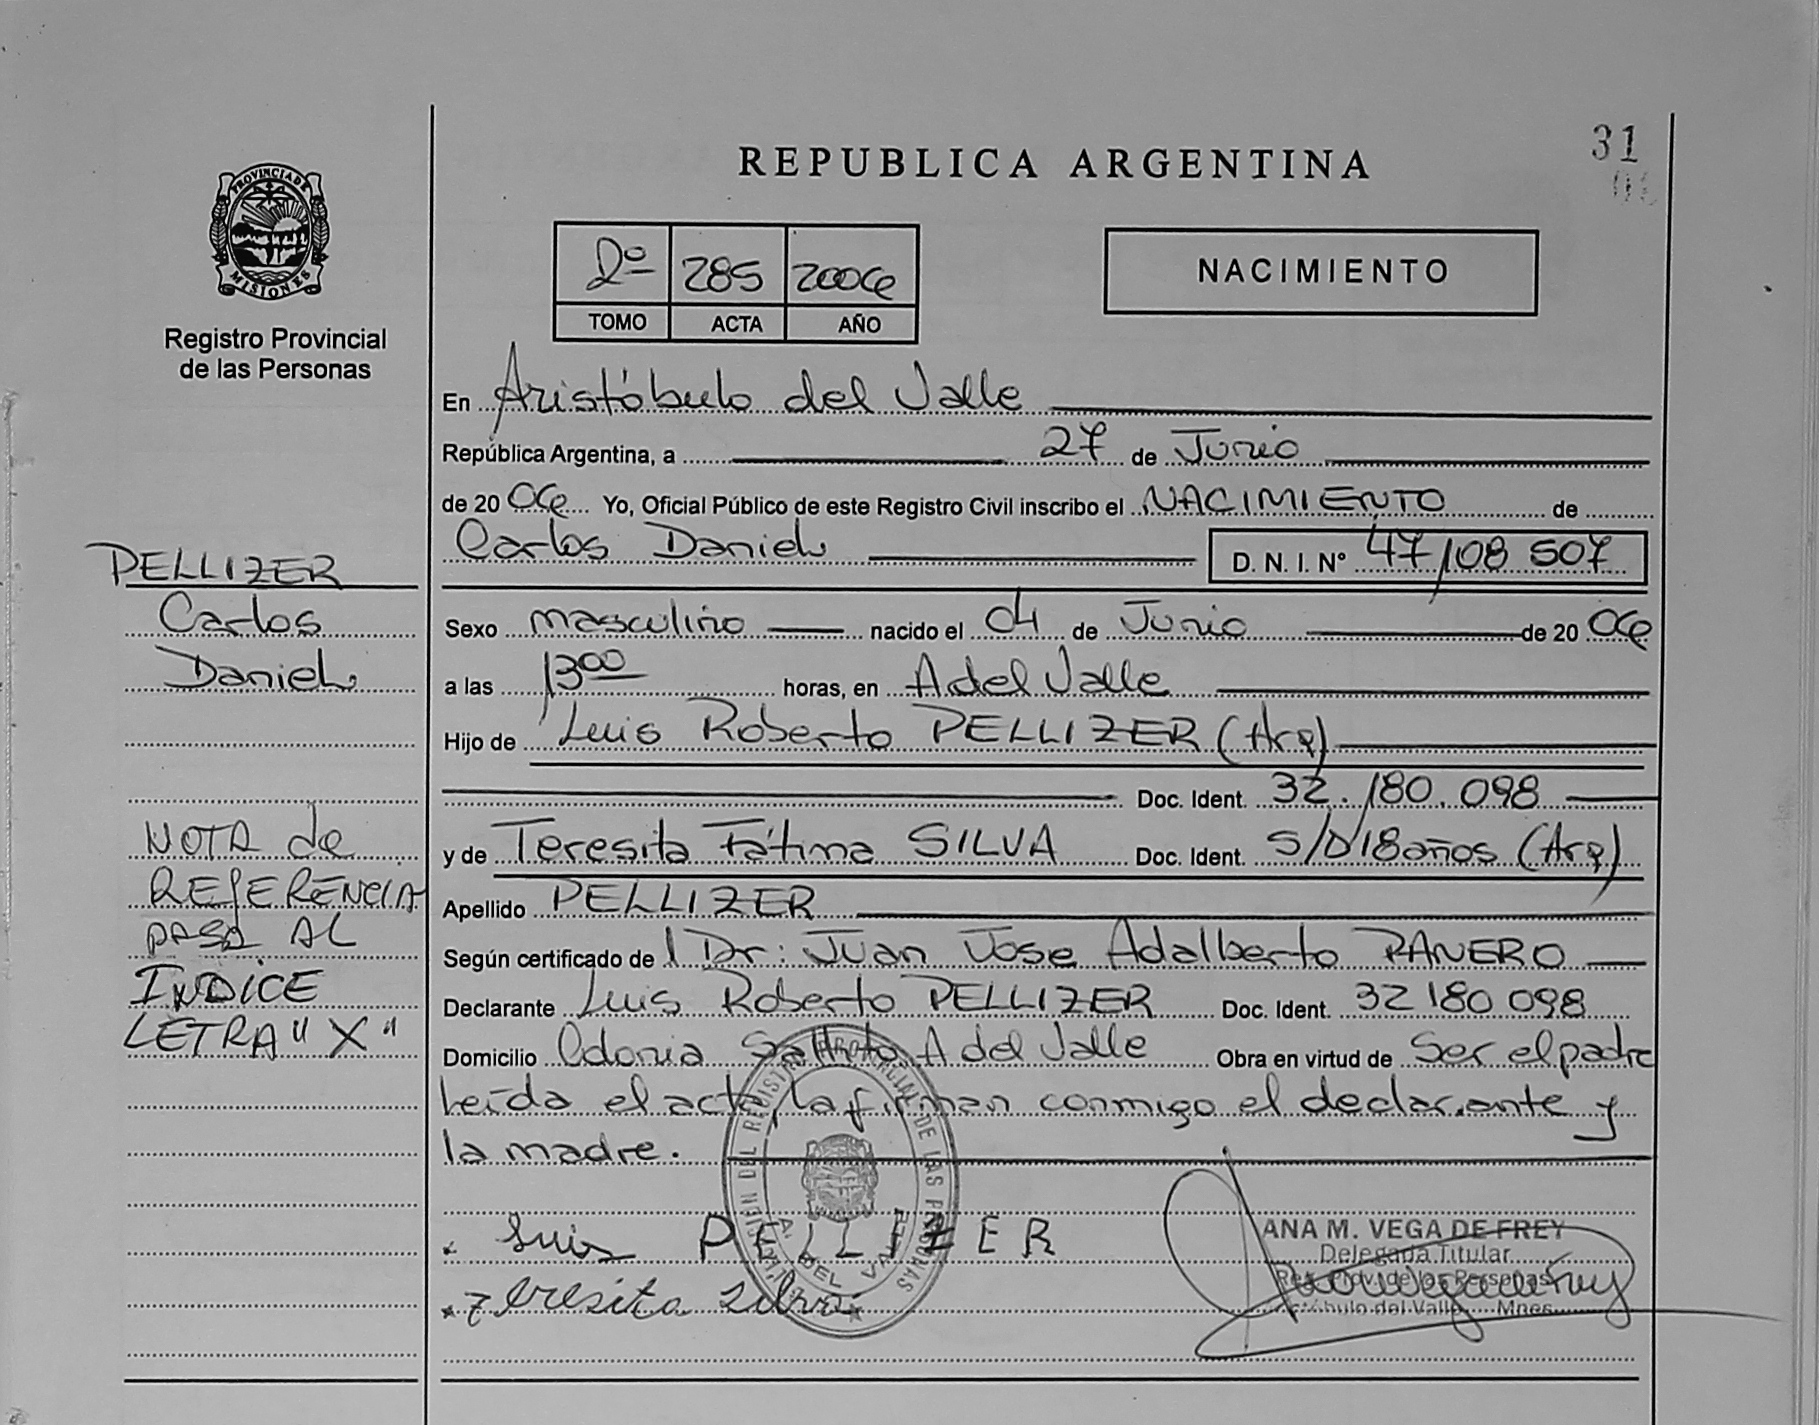 31
REPUBLICA ARGENTINA
PROVINCIA DE MISIONES
Registro Provincial
de las Personas
2º 285 2006
TOMO ACTA AÑO
NACIMIENTO
En Aristóbulo del Valle
República Argentina, a 27 de Junio
de 20 06 Yo, Oficial Público de este Registro Civil inscribo el NACIMIENTO de
Carlos Daniel D. N. I. Nº 47/108 507
PELLIZER
Carlos
Daniel
Sexo masculino nacido el 04 de Junio de 20 06
a las 13 00 horas, en A del Valle
Hijo de Luis Roberto PELLIZER (Arg)
Doc. Ident. 32.180.098
y de Teresita Fátima SILVA Doc. Ident. S/D 18 años (Arg)
Apellido PELLIZER
Según certificado de l Dr: Juan Jose Adalberto PANERO
Declarante Luis Roberto PELLIZER Doc. Ident. 32 180 098
Domicilio Colonia Saltito A del Valle Obra en virtud de Ser el padre
Leída el acta, la firman conmigo el declarante y
la madre.
NOTA de
REFERENCIA
PASA AL
INDICE
LETRA "X"
Luis PELLIZER
Teresita Silva
A. DEL VALLE
ANA M. VEGA DE FREY
Delegada Titular
Reg. Prov. de las Personas
Aristóbulo del Valle - Mnes.